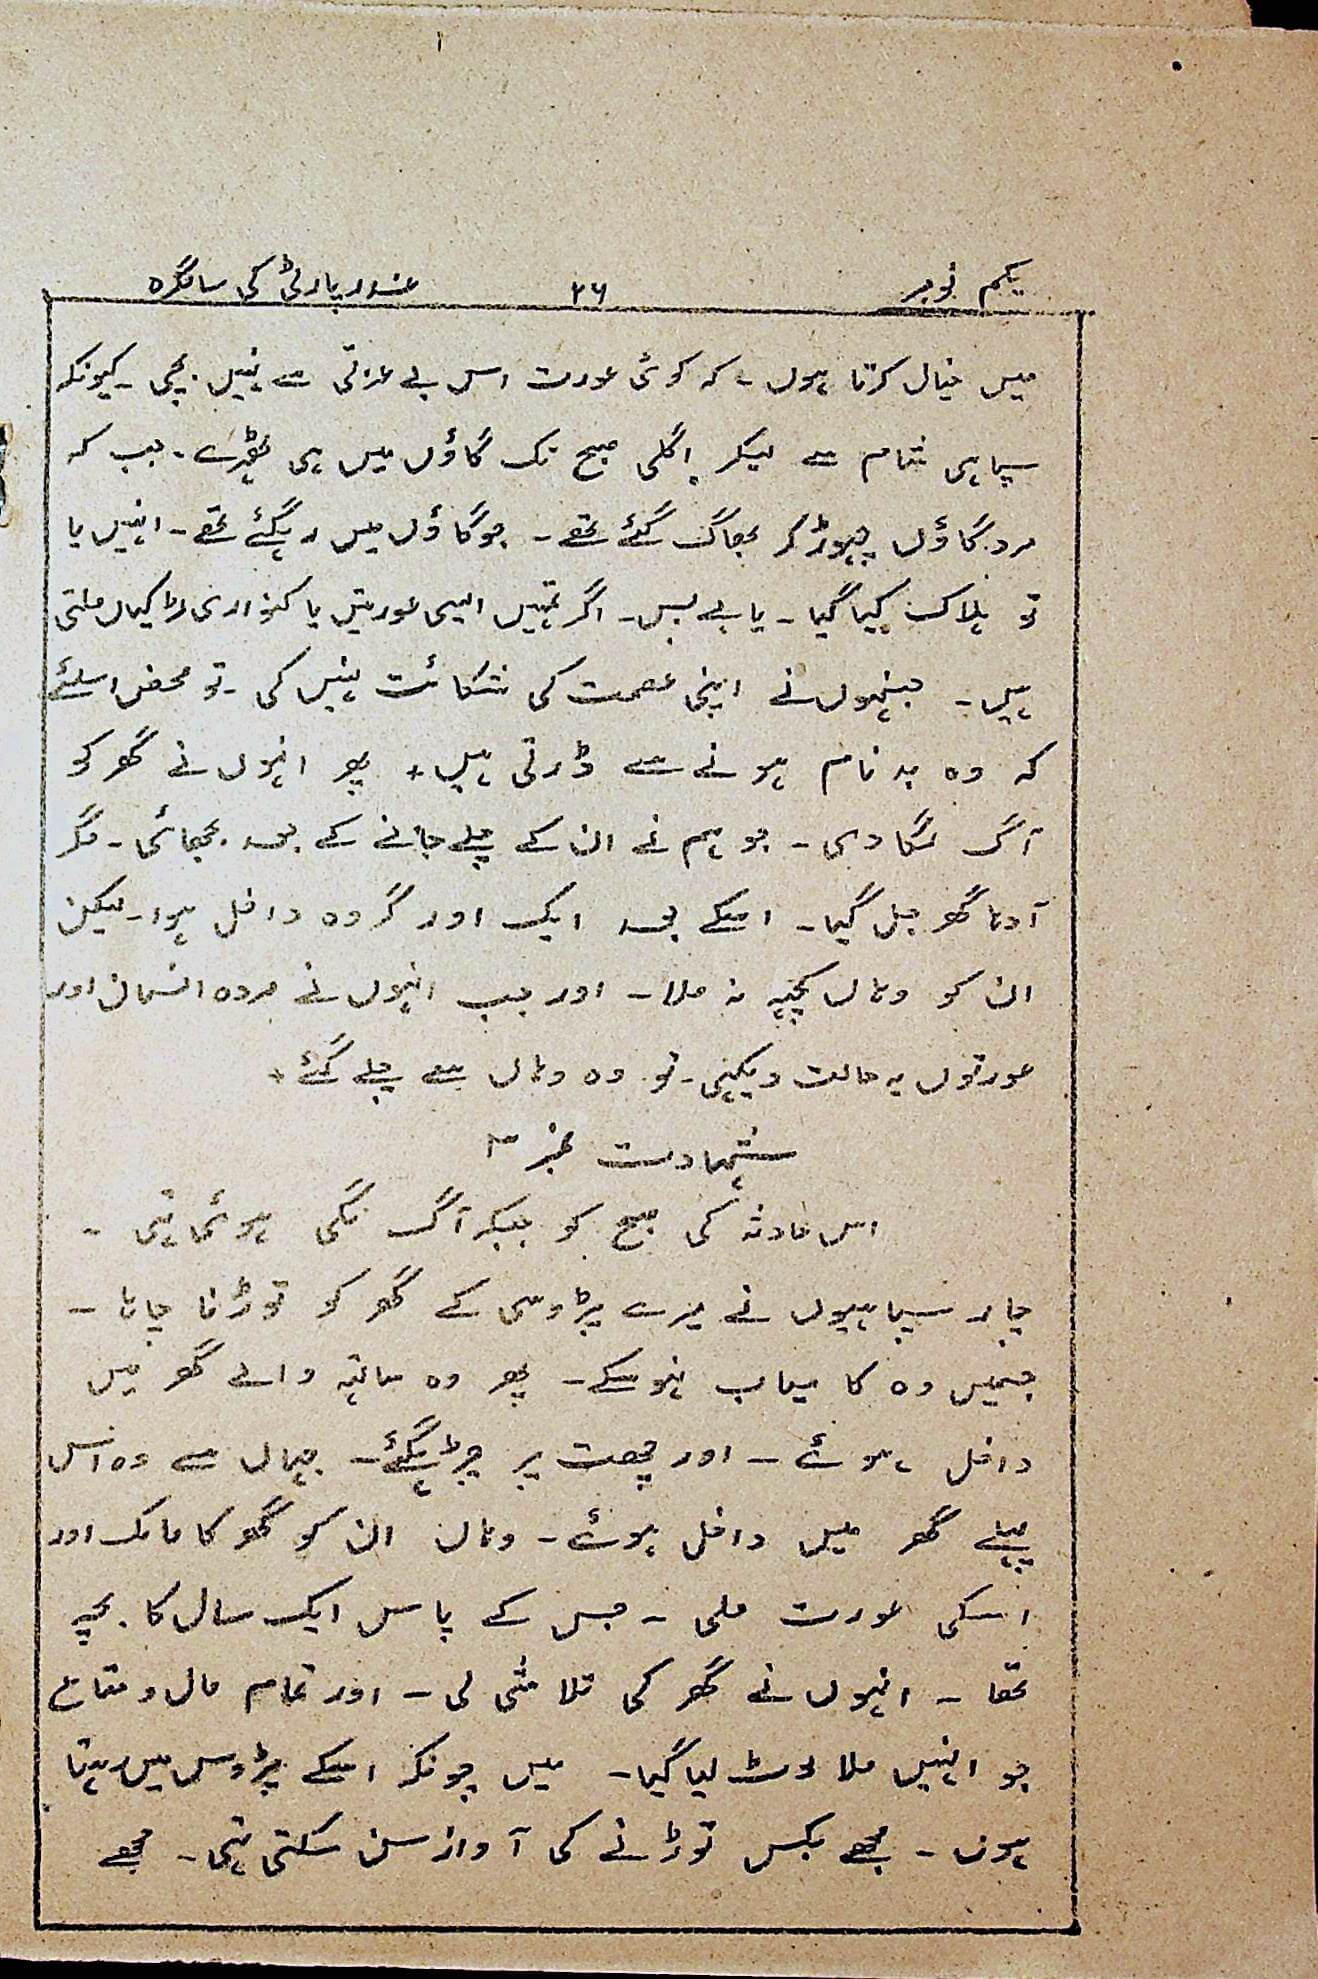 یکم نومبر ۲۶ غدر پارٹی کی سالگرہ
میں خیال کرتا ہوں ۔ کہ کوئی عورت اس بے عزتی سے نہیں بچی ۔ کیونکہ
سپاہی شام سے لیکر اگلی صبح تک گاؤں میں ہی ٹھہرے ۔ جب کہ
مرد گاؤں چہوڑ کر بھاگ گئے تھے ۔ جو گاؤں میں رہگئے تھے ۔ انہیں یا
تو ہلاک کیا گیا ۔ یا بے بس ۔ اگر تمہیں ایسی عورتیں یا کنواری لڑکیاں ملتی
ہیں ۔ جنہوں نے اپنی عصمت کی شکائت نہیں کی ۔ تو محض اسلئے
کہ وہ بد نام ہونے سے ڈرتی ہیں ٭ پھر انہوں نے گھر کو
آگ لگا دی ۔ جو ہم نے ان کے چلے جانے کے بعد بجھائی ۔ مگر
آدہا گھر جل گیا ۔ اسکے بعد ایک اور گروہ داخل ہوا ۔ لیکن
ان کو وہاں کچہہ نہ ملا ۔ اور جب انہوں نے مردہ انسان اور
عورتوں یہ حالت دیکہی ۔ تو وہ وہاں سے چلے گئے ٭
شہادت نمبر ۳
اس حادثہ کی صبح کو جبکہ آگ لگی ہوئی تہی ۔
چار سپاہیوں نے میرے پڑوسی کے گھر کو توڑنا چاہا ۔
جسمیں وہ کامیاب نہوسکے ۔ پھر وہ ساتہہ والے گھر میں
داخل ہوئے ۔ اور چھت پر چڑہگئے ۔ جہاں سے وہ اس
پہلے گھر میں داخل ہوئے ۔ وہاں ان کو گھر کا مالک اور
اسکی عورت ملی ۔ جس کے پاس ایک سال کا بچہ
تھا ۔ انہوں نے گھر کی تلاشی لی ۔ اور تمام مال و متاع
جو انہیں ملا لوٹ لیا گیا ۔ میں چونکہ اسکے پڑوس میں رہتا
ہوں ۔ مجھے بکس توڑنے کی آواز سن سکتی تہی ۔ مجھے